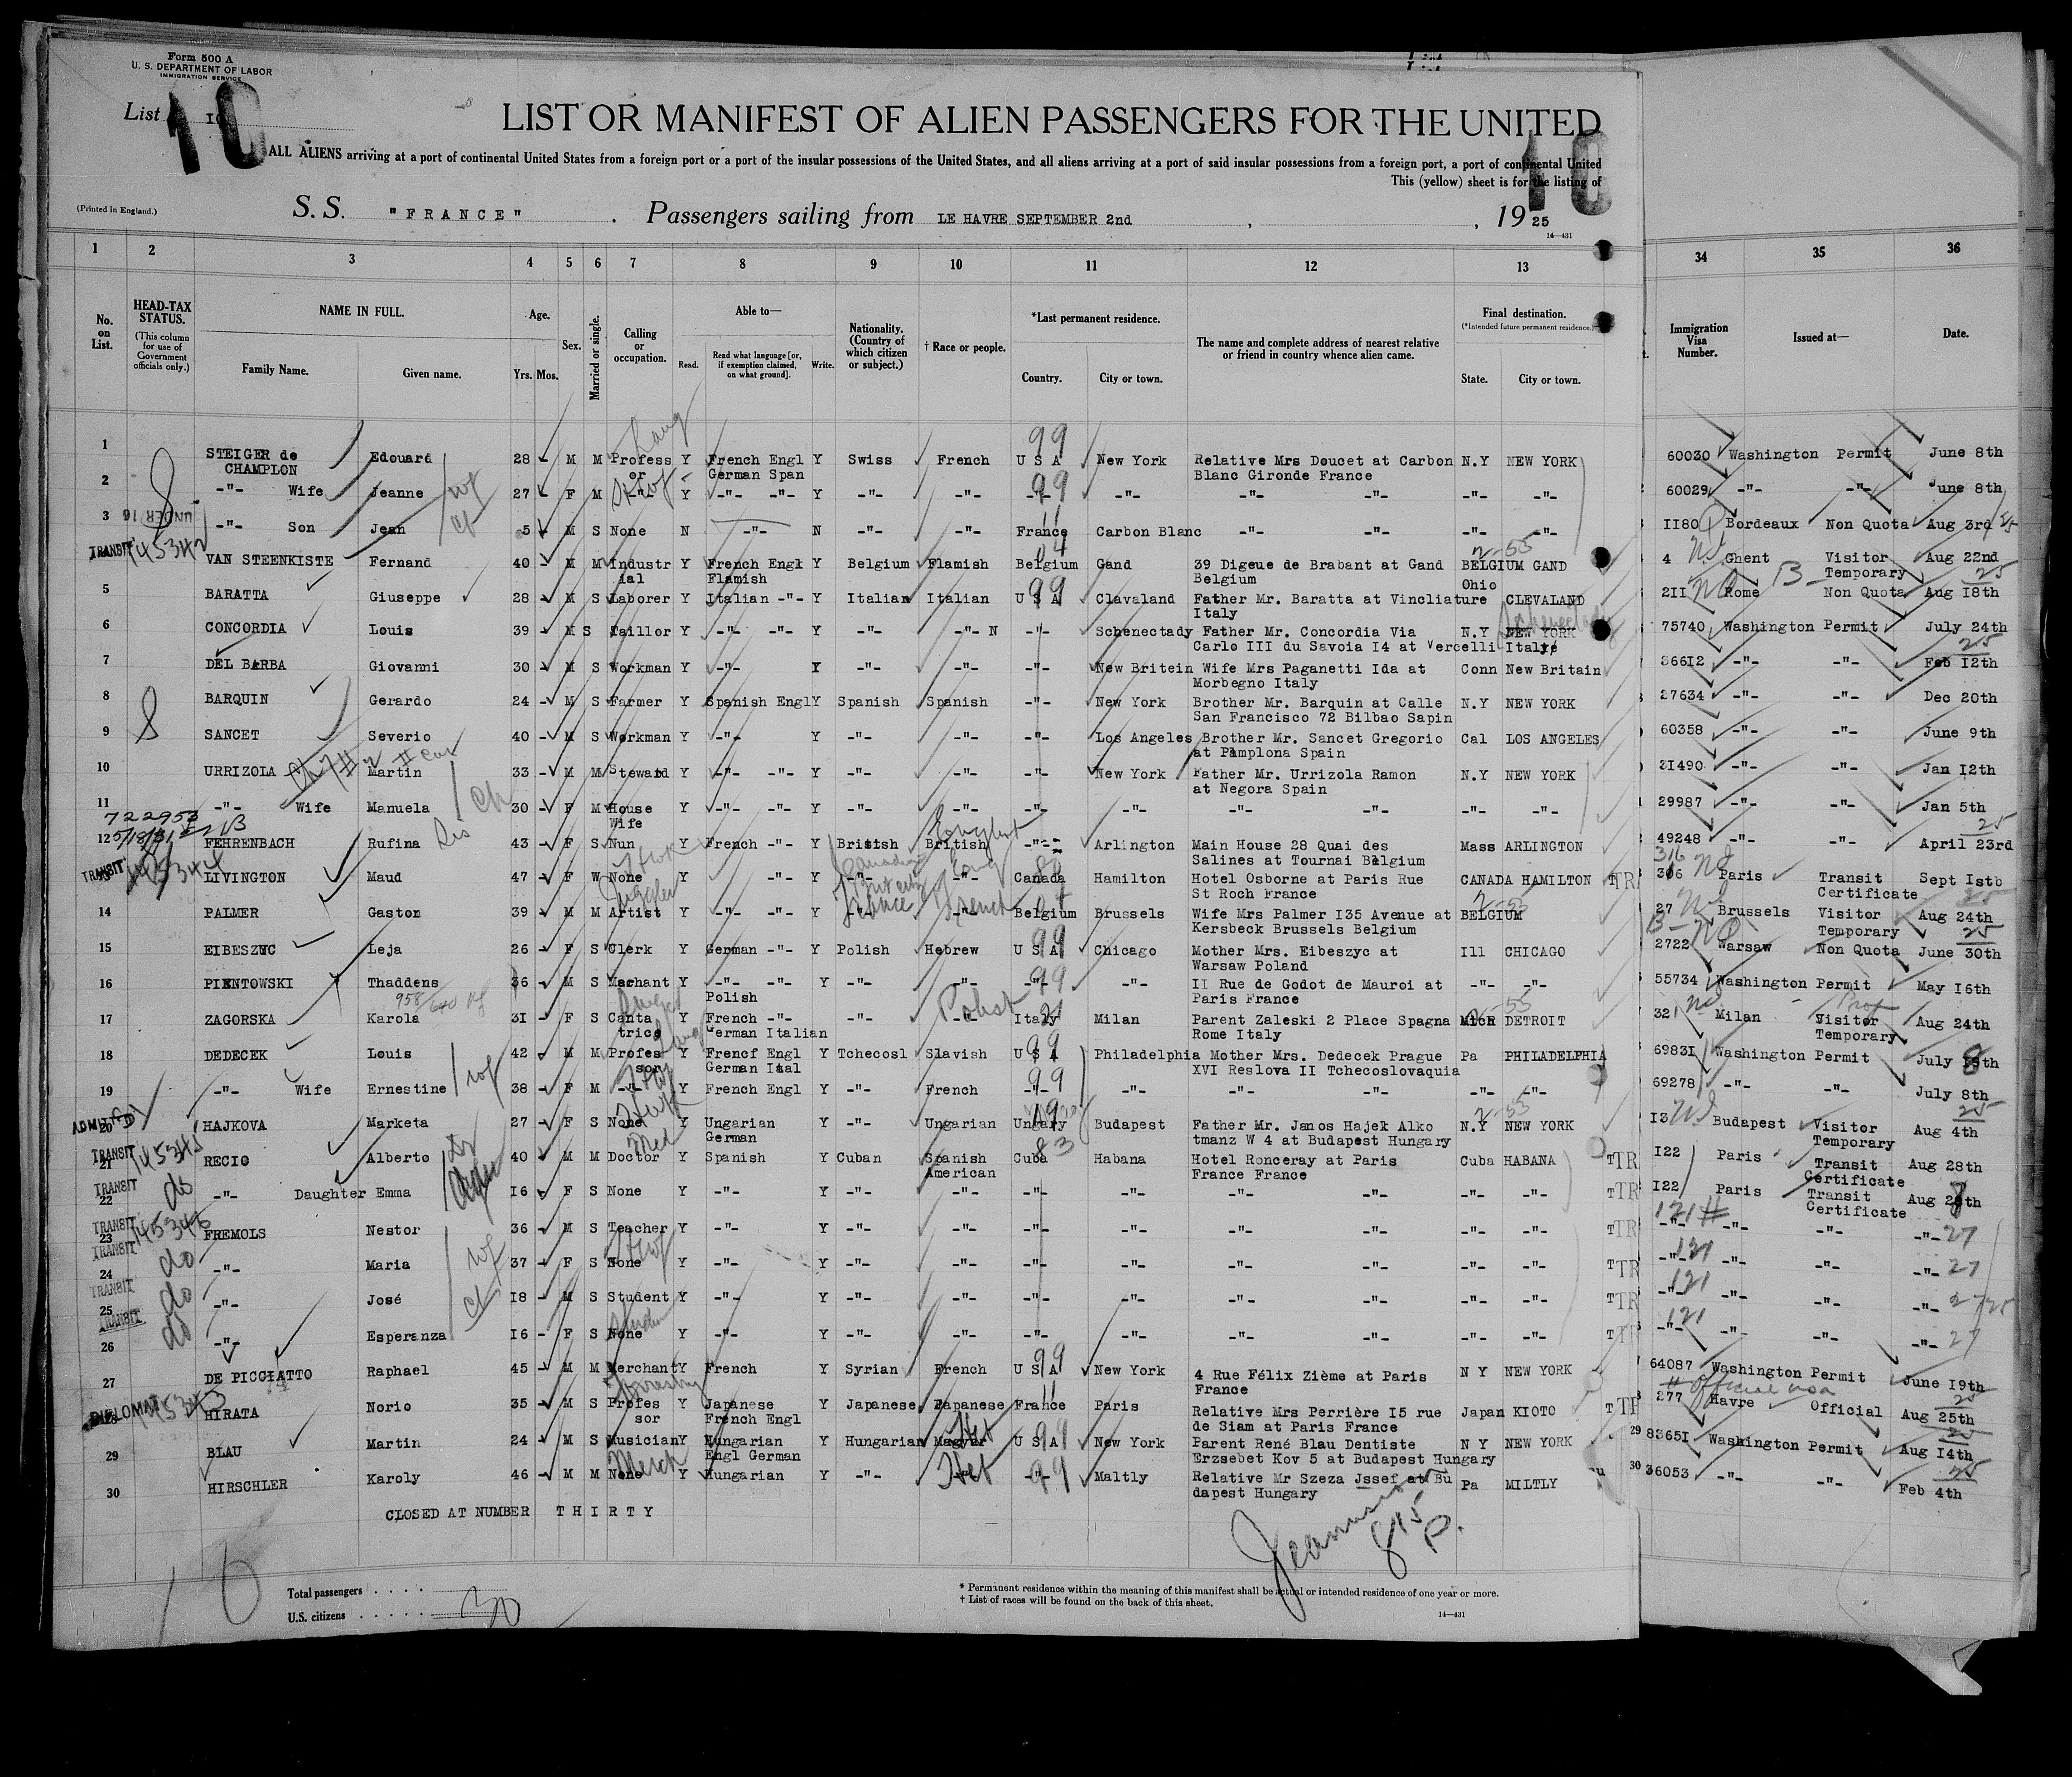 Form 500 A
U. S. DEPARTMENT OF LABOR
IMMIGRATION SERVICE
List 10
10
10
LIST OR MANIFEST OF ALIEN PASSENGERS FOR THE UNITED
ALL ALIENS arriving at a port of continental United States from a foreign port or a port of the insular possessions of the United States, and all aliens arriving at a port of said insular possessions from a foreign port, a port of continental United
This (yellow) sheet is for the listing of
(Printed in England.)
S. S. "FRANCE" . Passengers sailing from LE HAVRE SEPTEMBER 2nd , , 19 25
14—431
1 2 3 4 5 6 7 8 9 10 11 12 13 34 35 36
No. on List.
HEAD-TAX STATUS.
(This column for use of Government officials only.)
NAME IN FULL.
Family Name. Given name.
Age.
Yrs. Mos.
Sex.
Married or single.
Calling or occupation.
Able to—
Read. Read what language [or, if exemption claimed, on what ground]. Write.
Nationality. (Country of which citizen or subject.)
† Race or people.
*Last permanent residence.
Country. City or town.
The name and complete address of nearest relative or friend in country whence alien came.
Final destination.
(*Intended future permanent residence.)
State. City or town.
Immigration Visa Number.
Issued at—
Date.
1 STEIGER de Edouard 28 M M Profess Y French Engl Y Swiss French U S A New York Relative Mrs Doucet at Carbon N.Y NEW YORK 60030 Washington Permit June 8th
CHAMPLON or German Span Blanc Gironde France
2 -"- Wife Jeanne 27 F M -"- Y -"- -"- Y -"- -"- -"- -"- -"- -"- -"- -"- 60029 -"- -"- June 8th
3 -"- Son Jean 5 M S None N -"- N -"- -"- France Carbon Blanc -"- -"- -"- -"- II80 Bordeaux Non Quota Aug 3rd
UNDER 16
TRANSIT 145342
VAN STEENKISTE Fernand 40 M M Industr Y French Engl Y Belgium Flamish Belgium Gand 39 Digeue de Brabant at Gand BELGIUM GAND 4 Ghent Visitor Aug 22nd
ial Flamish Belgium Temporary
5 BARATTA Giuseppe 28 M S Laborer Y Italian -"- Y Italian Italian U S A Clavaland Father Mr. Baratta at Vincliature Ohio CLEVALAND 2II Rome Non Quota Aug I8th
Italy
6 CONCORDIA Louis 39 M S Taillor Y -"- -"- Y -"- -"- N -"- Schenectady Father Mr. Concordia Via N.Y NEW YORK 75740 Washington Permit July 24th
Carlo III du Savoia I4 at Vercelli Italy
7 DEL BARBA Giovanni 30 M S Workman Y -"- Y -"- -"- -"- New Britein Wife Mrs Paganetti Ida at Conn New Britain 36612 -"- -"- Feb I2th
Morbegno Italy
8 BARQUIN Gerardo 24 M S Farmer Y Spanish Engl Y Spanish Spanish -"- New York Brother Mr. Barquin at Calle N.Y NEW YORK 27634 -"- -"- Dec 20th
San Francisco 72 Bilbao Sapin
9 SANCET Severio 40 M S Workman Y -"- Y -"- -"- -"- Los Angeles Brother Mr. Sancet Gregorio Cal LOS ANGELES 60358 -"- -"- June 9th
at Pamplona Spain
10 URRIZOLA Martin 33 M M Steward Y -"- -"- Y -"- -"- -"- New York Father Mr. Urrizola Ramon N.Y NEW YORK 31490 -"- -"- Jan I2th
at Negora Spain
11 -"- Wife Manuela 30 F M House Y -"- -"- Y -"- -"- -"- -"- -"- -"- -"- -"- 29987 -"- -"- Jan 5th
Wife
722953
12 FEHRENBACH Rufina 43 F S Nun Y French -"- Y British British -"- Arlington Main House 28 Quai des Mass ARLINGTON 49248 -"- -"- April 23rd
Salines at Tournai Belgium
TRANSIT LIVINGTON Maud 47 F W None Y -"- Y -"- Canada Hamilton Hotel Osborne at Paris Rue CANADA HAMILTON TR 306 Paris Transit Sept Istb
St Roch France Certificate
14 PALMER Gaston 39 M M Artist Y -"- -"- Y -"- -"- Belgium Brussels Wife Mrs Palmer I35 Avenue at BELGIUM 27 Brussels Visitor Aug 24th
Kersbeck Brussels Belgium Temporary
15 EIBESZUC Leja 26 F S Clerk Y German -"- Y Polish Hebrew U S A Chicago Mother Mrs. Eibeszyc at Ill CHICAGO 2722 Warsaw Non Quota June 30th
Warsaw Poland
16 PIENTOWSKI Thaddens 36 M S Machant Y -"- -"- Y -"- -"- -"- -"- II Rue de Godot de Mauroi at -"- -"- 55734 Washington Permit May I6th
Polish Paris France
17 ZAGORSKA Karola 3I F S Canta Y French -"- Y -"- -"- Italy Milan Parent Zaleski 2 Place Spagna Mich DETROIT 32 Milan Visitor Aug 24th
trice German Italian Rome Italy Temporary
18 DEDECEK Louis 42 M M Profes Y Frencf Engl Y Tchecosl Slavish U S A Philadelphia Mother Mrs. Dedecek Prague Pa PHILADELPHIA 6983I Washington Permit July 8th
sor German Ital XVI Reslova II Tchecoslovaquia
19 -"- Wife Ernestine 38 F M -"- Y French Engl Y -"- French -"- -"- -"- -"- -"- -"- 69278 -"- -"- July 8th
20 HAJKOVA Marketa 27 F S None Y Ungarian Y -"- Ungarian Ungary Budapest Father Mr. Janos Hajek Alko N.Y NEW YORK I3 Budapest Visitor Aug 4th
ADMITTED German tmanz W 4 at Budapest Hungary Temporary
TRANSIT 145345
21 RECIO Alberto 40 M M Doctor Y Spanish Y Cuban Spanish Cuba Habana Hotel Ronceray at Paris Cuba HABANA TR I22 Paris Transit Aug 28th
American France France Certificate
TRANSIT do
22 -"- Daughter Emma I6 F S None Y -"- Y -"- -"- -"- -"- -"- -"- -"- -"- TR I22 Paris Transit Aug 28th
Certificate
TRANSIT 145346
23 FREMOLS Nestor 36 M S Teacher Y -"- Y -"- -"- -"- -"- -"- -"- -"- -"- TR 121 -"- -"- -"- 27
TRANSIT do
24 -"- Maria 37 F S None Y -"- Y -"- -"- -"- -"- -"- -"- -"- -"- TR 121 -"- -"- -"- 27
TRANSIT do
25 -"- José I8 M S Student Y -"- Y -"- -"- -"- -"- -"- -"- -"- -"- TR 121 -"- -"- -"- 27
TRANSIT do
26 -"- Esperanza I6 F S None Y -"- Y -"- -"- -"- -"- -"- -"- -"- -"- TR 121 -"- -"- -"- 27
27 DE PICCIATTO Raphael 45 M M Merchant Y French Y Syrian French U S A New York 4 Rue Félix Zième at Paris N Y NEW YORK 64087 Washington Permit June I9th
France
Official visa
DIPLOMAT HIRATA Norio 35 M S Profes Y Japanese Y Japanese Japanese France Paris Relative Mrs Perrière I5 rue Japan KIOTO TR 277 Havre Official Aug 25th
sor French Engl de Siam at Paris France
29 BLAU Martin 24 M S Musician Y Hungarian Y Hungarian Magyar U S A New York Parent René Blau Dentiste N Y NEW YORK 29 8365I Washington Permit Aug I4th
Engl German Erzsebet Kov 5 at Budapest Hungary
30 HIRSCHLER Karoly 46 M M None Y Hungarian Y -"- -"- Maltly Relative Mr Szeza Jssef at Bu Pa MILTLY 30 36053 -"- -"- Feb 4th
dapest Hungary
CLOSED AT NUMBER T H I R T Y
Total passengers . . . .
U.S. citizens . . . . . 30
* Permanent residence within the meaning of this manifest shall be actual or intended residence of one year or more.
† List of races will be found on the back of this sheet.
14—431